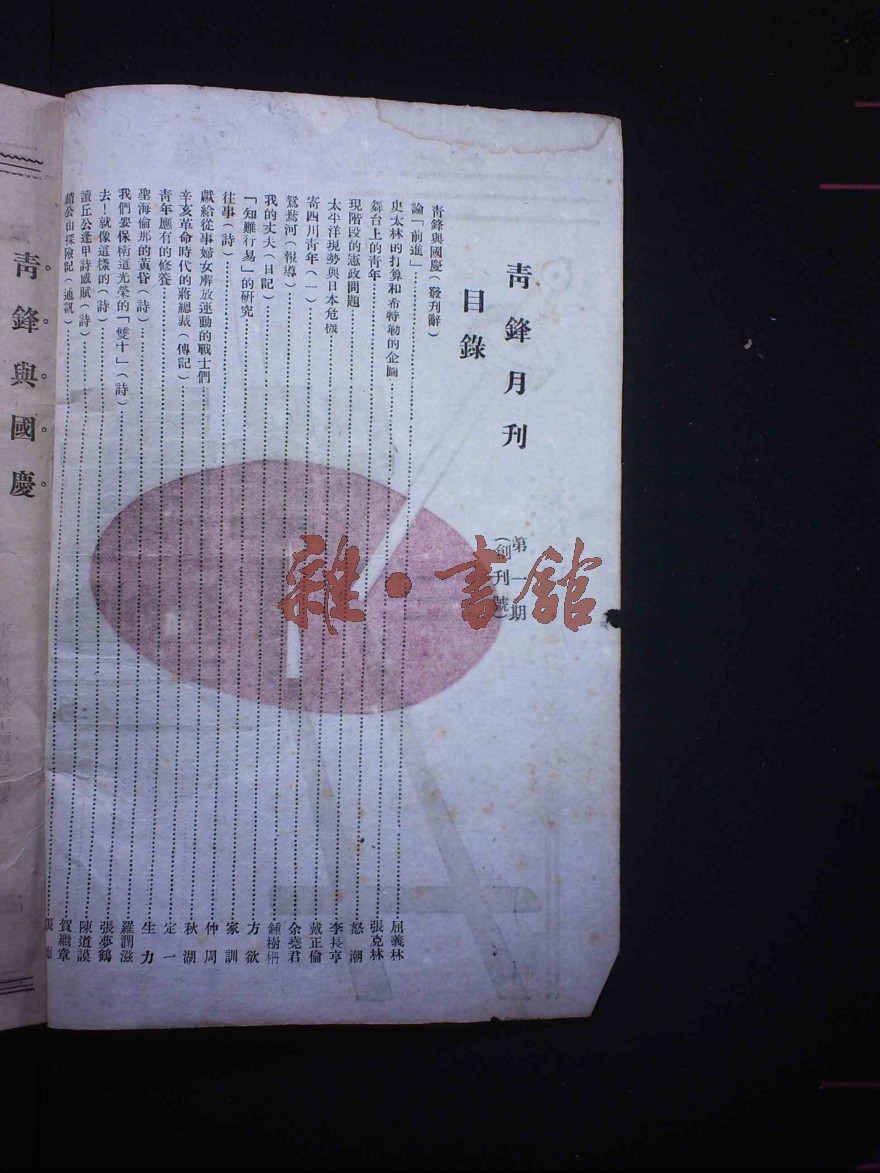 青鋒月刊 第一期
（創刊號）
目錄
青鋒與國慶（發刊辭）
論「前進」……屈義林
史太林的打算和希特勒的企圖……張克林
舞台上的青年……怒潮
現階段的憲政問題……李長亨
太平洋現勢與日本危機……戴正倫
寄四川青年（一）……余堯君
鴛鴦河（報導）……鍾樹枬
我的丈夫（日記）……方欲
「知難行易」的研究……家訓
往事（詩）……仲周
獻給從事婦女解放運動的戰士們……秋湖
辛亥革命時代的蔣總裁（傳記）……定一
青年應有的修養……生力
聖海倫那的黃昏（詩）……羅潤滋
我們要保衛這光榮的「雙十」（詩）……張夢鶴
去！就像這樣的（詩）……陳道謨
讀丘公逢甲詩感賦（詩）……賀繼章
趙公山探險記（通訊）……張
青鋒與國慶
雜·書館